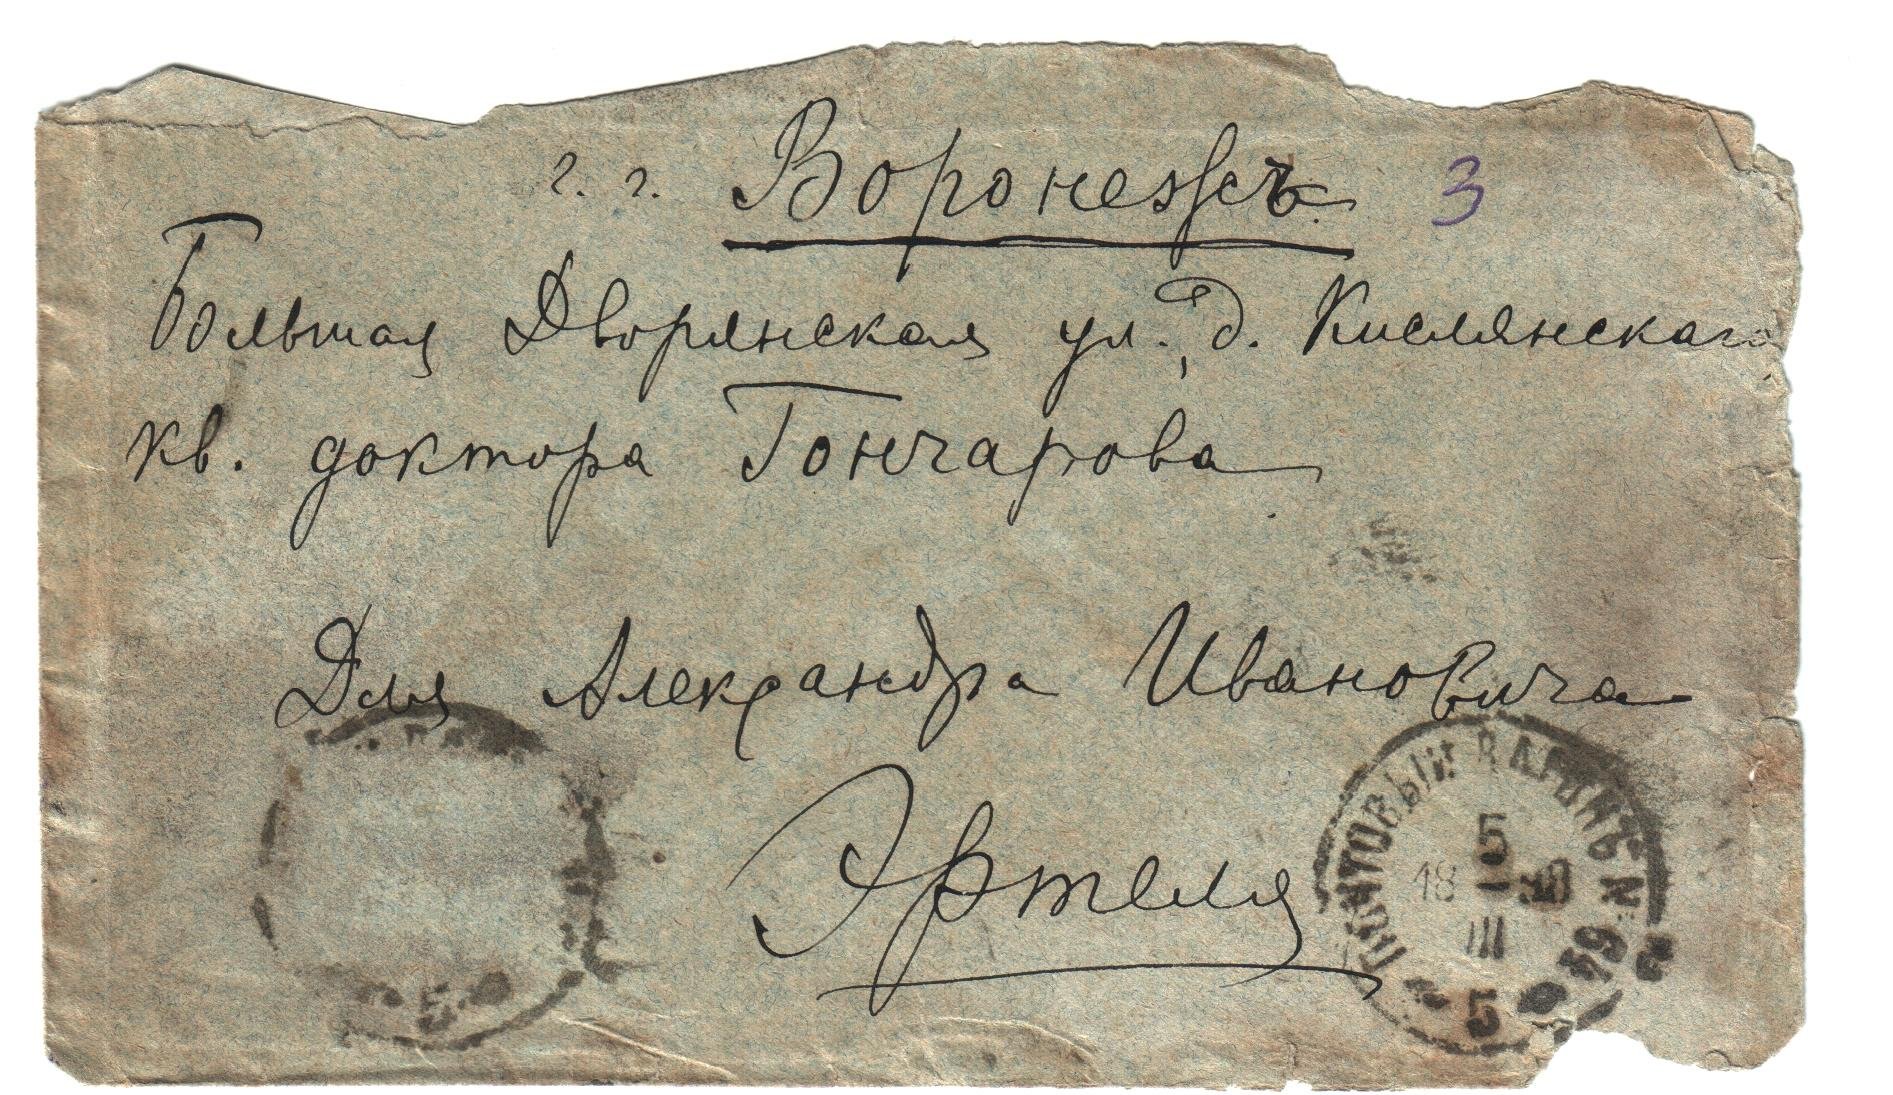 г. г. Воронежъ 3
Большая Дворянская ул., д. Кислянскаго
кв. доктора Гончарова
Для Александра Ивановича
Эртеля
ПОЧТОВЫЙ ВАГОНЪ N
5
18
III
5
5